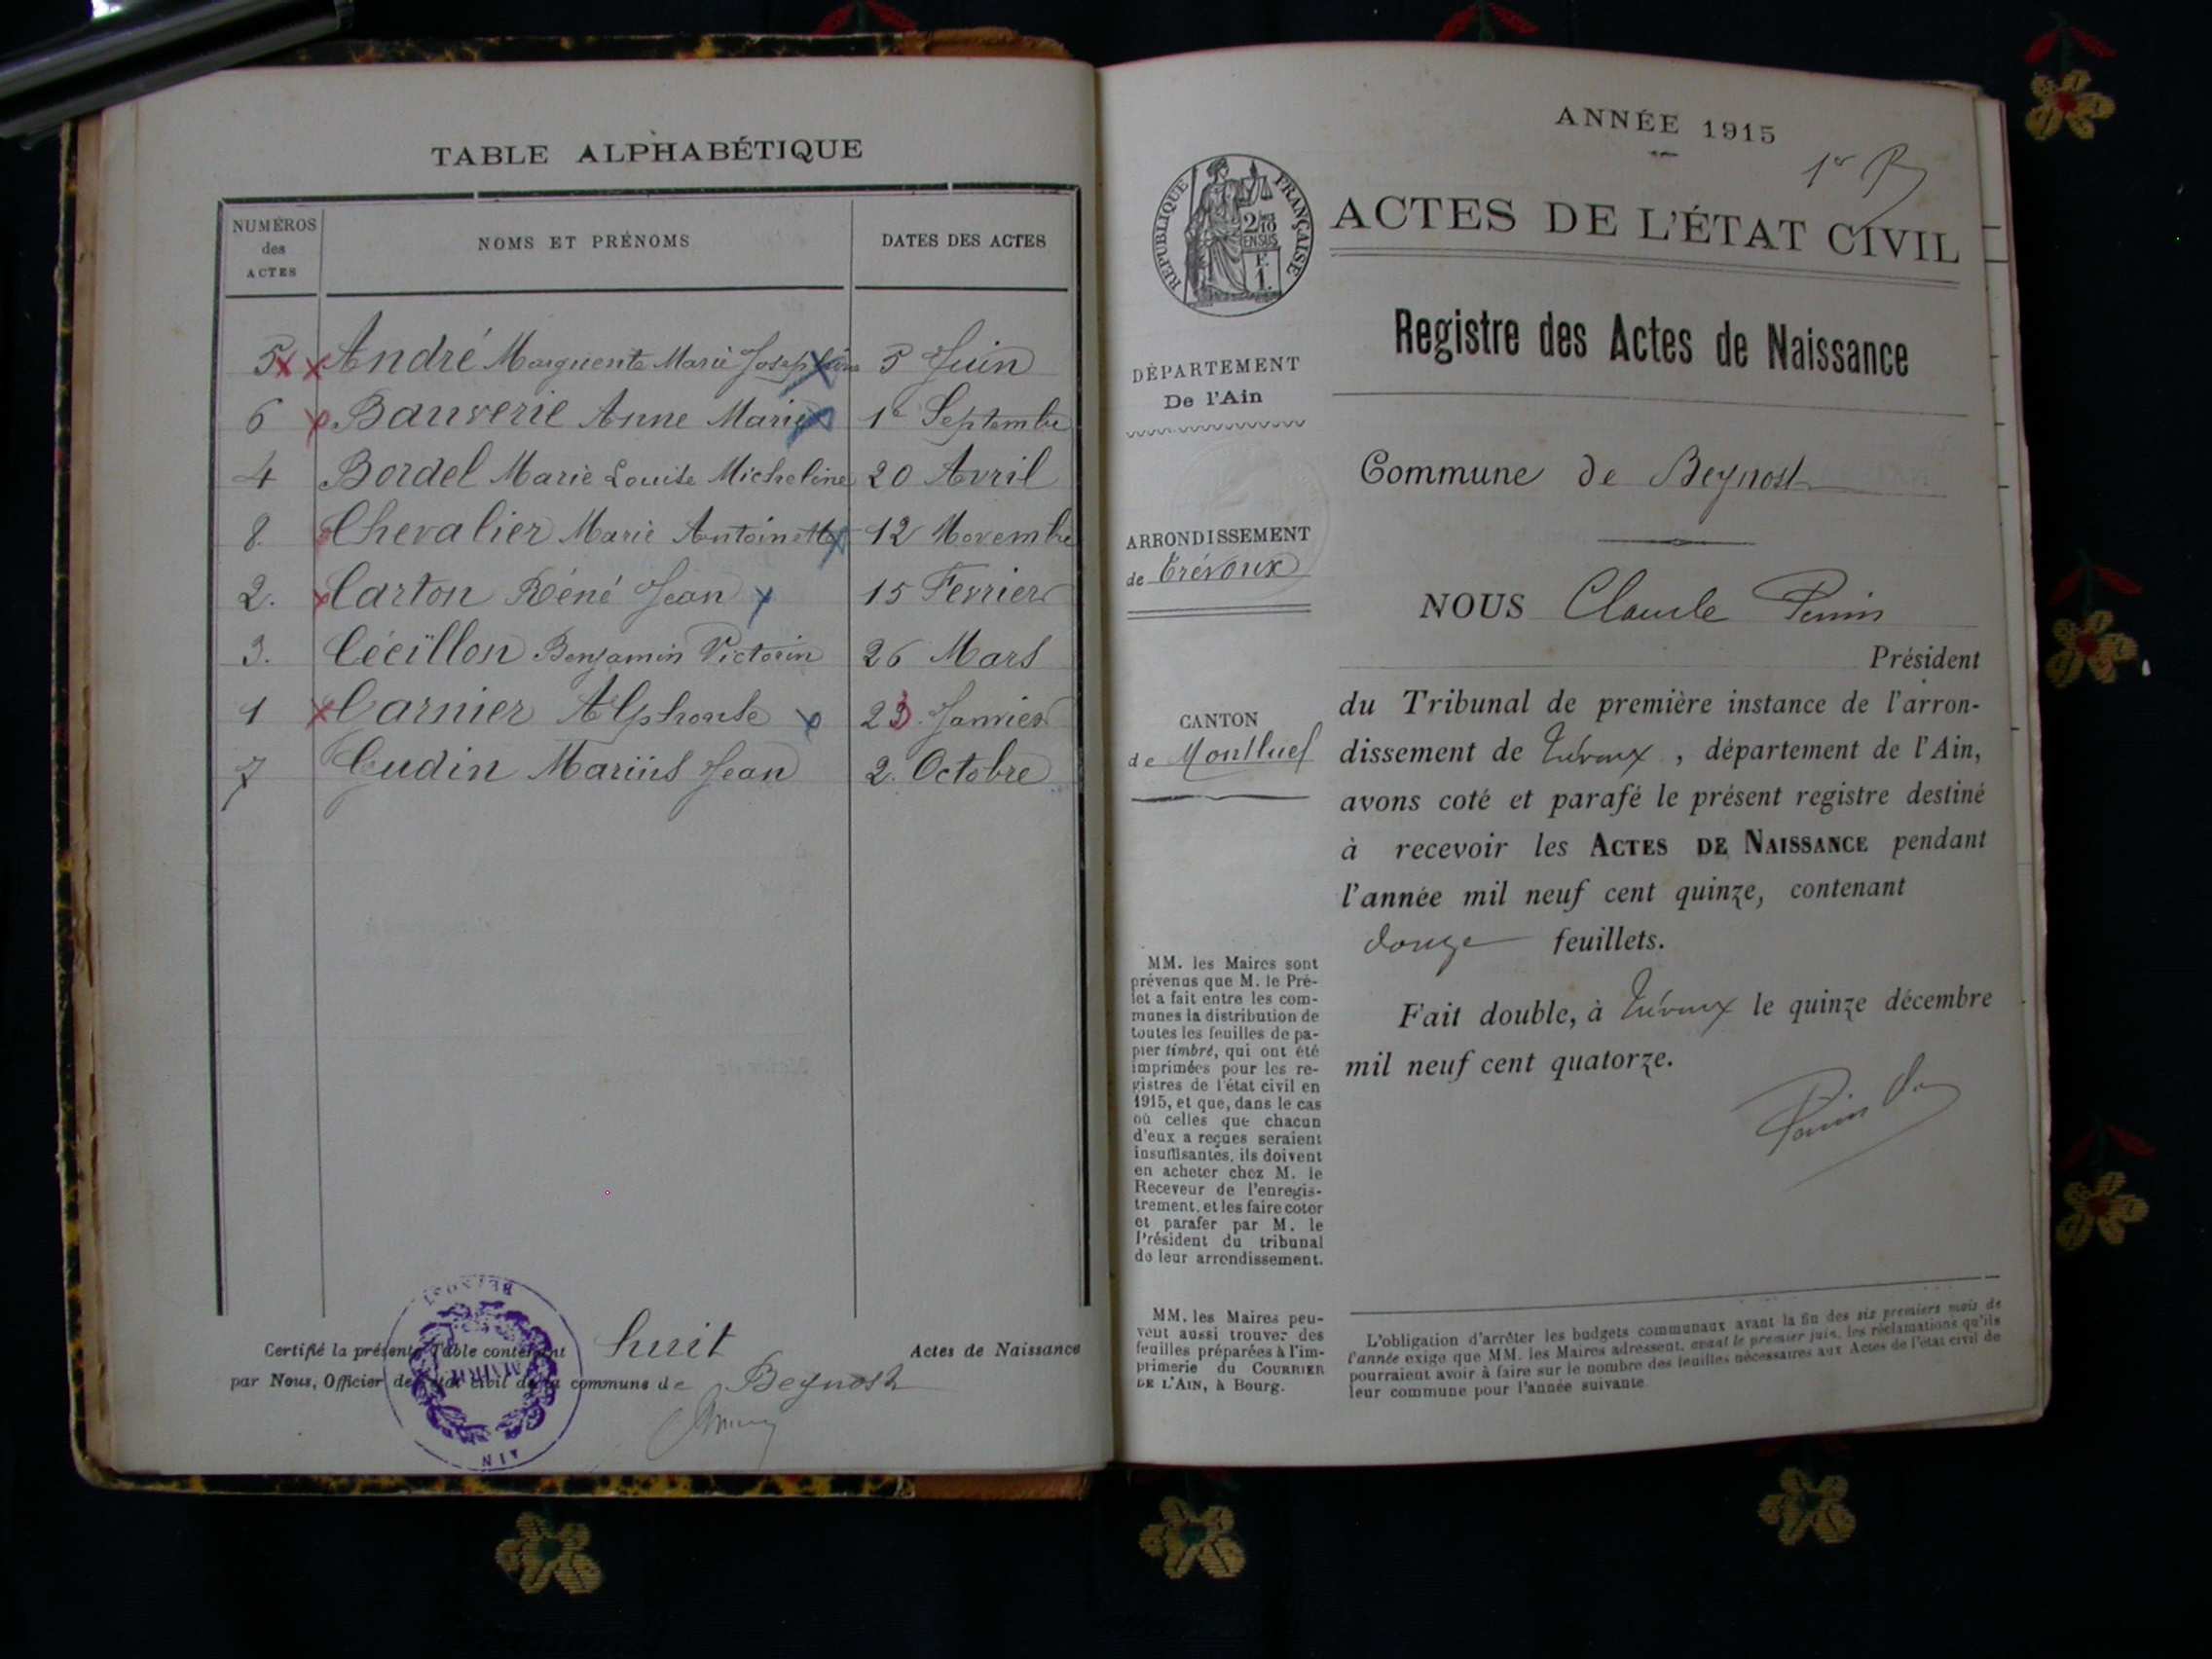 TABLE ALPHABÉTIQUE
NUMÉROS des ACTES NOMS ET PRÉNOMS DATES DES ACTES
5 André Marguerite Marie Joséphine 5 Juin
6 Bauverie Anne Marie 1er Septembre
4 Bordel Marie Louise Micheline 20 Avril
8. Chevalier Marie Antoinette 12 Novembre
2. Carton Réné Jean 15 Fevrier
3. Cécillon Benjamin Victorin 26 Mars
1 Garnier Alphonse 23 Janvier
7 Gudin Marius Jean 2. Octobre
Certifié la présente Table contenant huit Actes de Naissance
par Nous, Officier de l'état civil de la commune de Beynost
BEYNOST
MAIRIE
AIN
ANNÉE 1915
1er
RÉPUBLIQUE FRANÇAISE
2/10
EN SUS
F.
1.
ACTES DE L'ÉTAT CIVIL
Registre des Actes de Naissance
DÉPARTEMENT
De l'Ain
Commune de Beynost
ARRONDISSEMENT
de Trévoux
NOUS Claude Perrin
Président
CANTON
de Montluel
du Tribunal de première instance de l'arron-
dissement de Trévoux, département de l'Ain,
avons coté et parafé le présent registre destiné
à recevoir les ACTES DE NAISSANCE pendant
l'année mil neuf cent quinze, contenant
douze feuillets.
Fait double, à Trévoux le quinze décembre
mil neuf cent quatorze.
MM. les Maires sont
prévenus que M. le Pré-
fet a fait entre les com-
munes la distribution de
toutes les feuilles de pa-
pier timbré, qui ont été
imprimées pour les re-
gistres de l'état civil en
1915, et que, dans le cas
où celles que chacun
d'eux a reçues seraient
insuffisantes, ils doivent
en acheter chez M. le
Receveur de l'enregis-
trement, et les faire coter
et parafer par M. le
Président du tribunal
de leur arrondissement.
MM. les Maires peu-
vent aussi trouver des
feuilles préparées à l'im-
primerie du COURRIER
DE L'AIN, à Bourg.
L'obligation d'arrêter les budgets communaux avant la fin des six premiers mois de
l'année exige que MM. les Maires adressent, avant le premier juin, les réclamations qu'ils
pourraient avoir à faire sur le nombre des feuilles nécessaires aux Actes de l'état civil de
leur commune pour l'année suivante